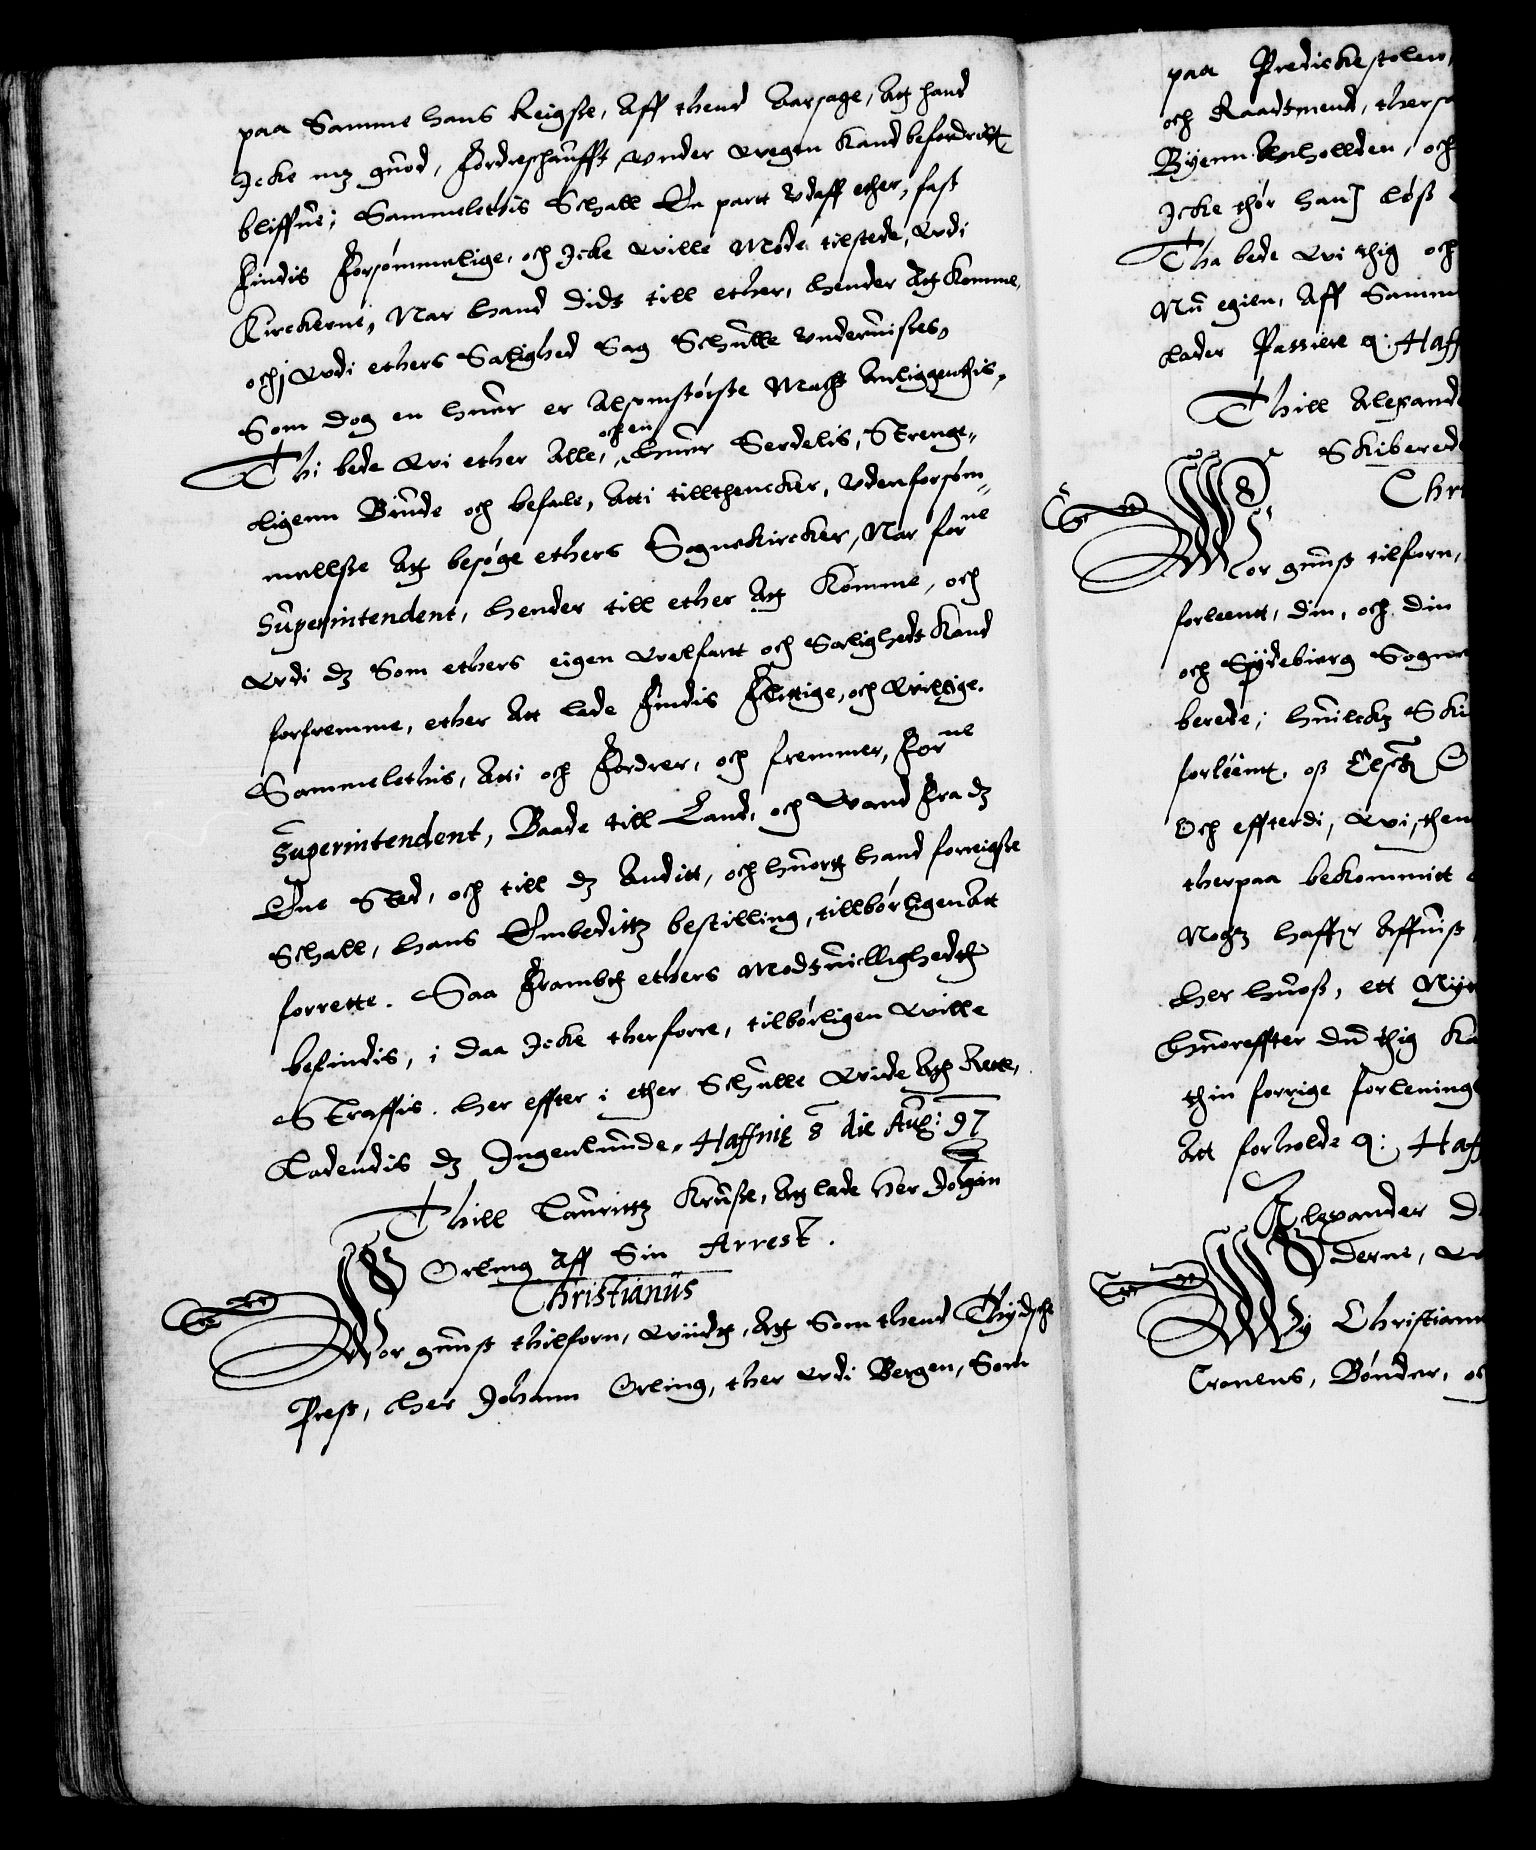 paa Samme hans Reigsze, Aff thend Aarsage, Att hand
Icke mz guod, Fordreschaufft, under Weigen kand befordritt
bliffue; Sammelethis Schall En partt Udaff ether, fast
Findis Forsømmelige, och Icke Wille Møde tilstede, Udi
Kirckerne, Nar hand Didt till ether, hender Att Komme,
och Udi ethers Salighed Sag Schulle Underuisses,
Som dog en huer er Alsomstørste Macht Anliggenthis,
Thi bede Wi ether Alle, och en huer Serdelis, Strenge-
ligenn Biude och befale, Atti tillthencker, Uden forsøm-
mellsse Att besøge ethers Sognekircker, Nar forne
Superintendent, hender till ether Att Komme, och
Udi dz Som ethers eigen Welfartt och Salighedt Kand
forfremme, ether Att lade Findis Flittige, och Willige.
Sammelethis, Atti och Fordrer, och fremmer, Forne
Superintendent, Baade till Land, och Wand Fra dz
Ene Sted, och till dz Anditt, och huortt hand forreigsse
Schall, hans Embedittz bestilling, tillbørligen Att
forrette. Saa Frambtt ethers Modtuillighedtt
befindis, i daa Icke therforre, tilbørligen Wille
Straffis. Her effter i ether Schulle Wide Att Rette,
Ladendis dz Ingenlunde. Haffnię 8 die Aug: 97
Thill Laurittz Kruse, Att lade Her Johan
Orling Aff Sin Arrest.
Christianus
Wor gunst thilforn, Wiidt, Att Som thend Thydsche
Prest, Her Johann Orling, ther Udi Bergen, Som
paa Predickestolen,
och Raadtmend, thersa
Byenn Anhollden, och
Icke thør hanJ løss
Tha bede Wi thig och
Nu egien, Aff Samm
lader Passiere q: Haff
Thill Alexand
Skibered
Chri
Wor gunst tilforn,
forlentt, din, och din
och Spydebierg Sogne
berede; huilckz Ski
forleentt, oss
Och effterdi, Wi, them
therpaa bekommitt
Nogz haffr Affuist
her huoss, ett Nyt
Huoreffter du thig Ka
thin forrige forlening
Att forholde q: Haff
Alexander D
derne, Ud
Wy Christian
Cronens, Bønder, oc